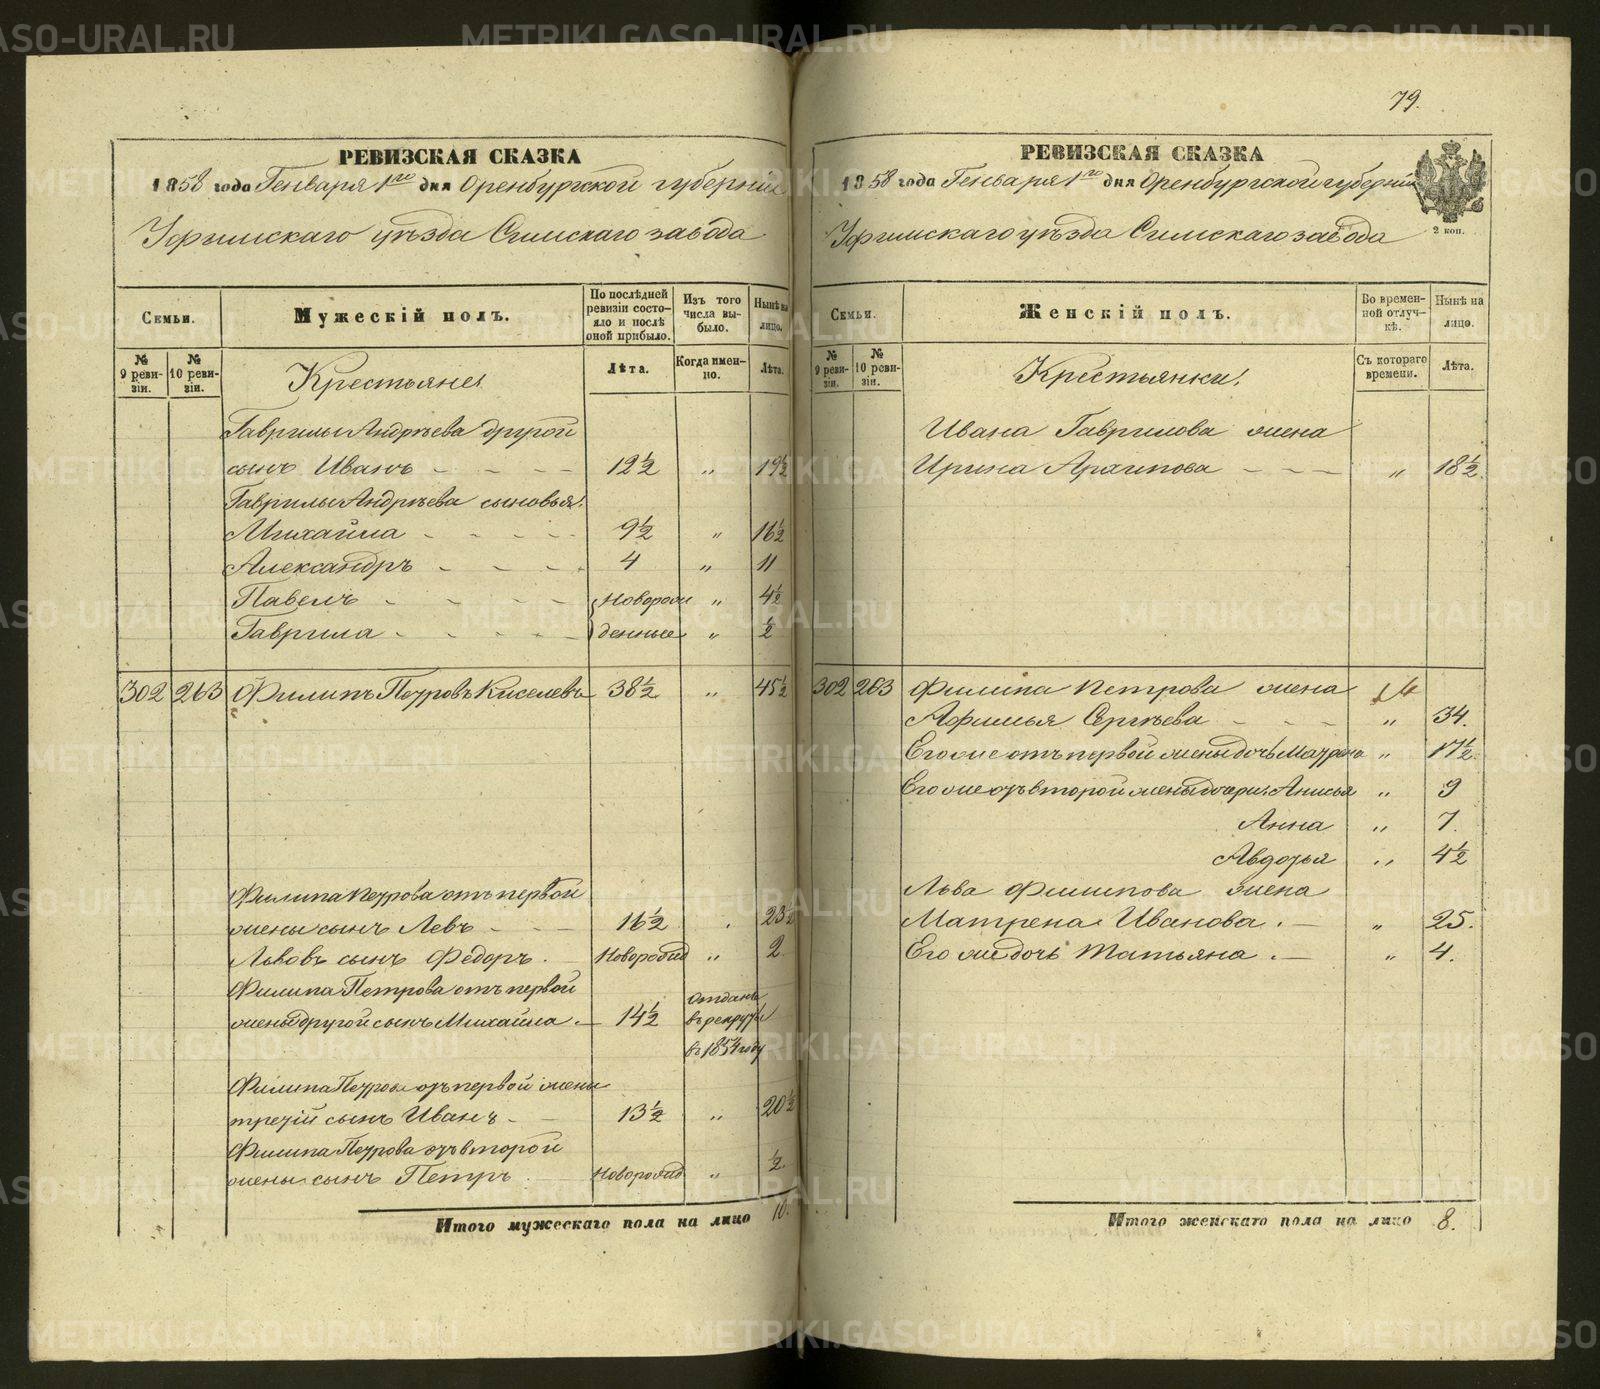 79.
РЕВИЗСКАЯ СКАЗКА
1858 года Генваря 1го дня Оренбургской губерніи
Уфимскаго уѣзда Симскаго завода
Семьи.
Мужескій полъ.
По послѣдней ревизіи состояло и послѣ оной прибыло.
Изъ того числа выбыло.
Нынѣ на лицо.
№ 9 ревизіи.
№ 10 ревизіи.
Крестьяне.
Лѣта.
Когда именно.
Лѣта.
Гаврилы Андреева другой
сынъ Иванъ - - - - 12½ „ 19½
Гаврилы Андреева сыновья:
Михайла - - - - - 9½ „ 16½
Александръ - - - - 4 „ 11
Павелъ - - - - Новорож „ 4½
Гаврила - - - - - денные „ ½
302 263 Филипъ Петровъ Киселевъ 38½ „ 45½
Филипа Петрова отъ первой
жены сынъ Левъ - - - 16½ . 23½
Львовъ сынъ Федоръ. - Новорожд „ 2.
Филипа Петрова отъ первой
жены другой сынъ Михайла. - 14½ Отданъ
въ рекруты
въ 1854 году
Филипа Петрова отъ первой жены
третій сынъ Иванъ - - 13½ „ 20½
Филипа Петрова отъ второй
жены сынъ Петръ - Новорожд „ ½.
Итого мужескаго пола на лицо 10.
РЕВИЗСКАЯ СКАЗКА
1858 года Генваря 1го дня Оренбургской губерніи
2 коп.
Уфимскаго уѣзда Симскаго завода
Семьи.
Женскій полъ.
Во временной отлучкѣ.
Нынѣ на лицо.
№ 9 ревизіи.
№ 10 ревизіи.
Крестьянки.
Съ котораго времени.
Лѣта.
Ивана Гаврилова жена
Ирина Архипова - - - „ 18½.
302 263 Филипа Петрова жена
Афимья Сергѣева - - - „ 34.
Его же отъ первой жены дочь Матрена „ 17½.
Его же отъ второй жены дочери: Анисья „ 9
Анна „ 7.
Авдотья „ 4½
Льва Филипова жена
Матрена Иванова. - „ 25.
Его же дочь Татьяна. - „ 4.
Итого женскаго пола на лицо 8.
METRIKI.GASO-URAL.RU